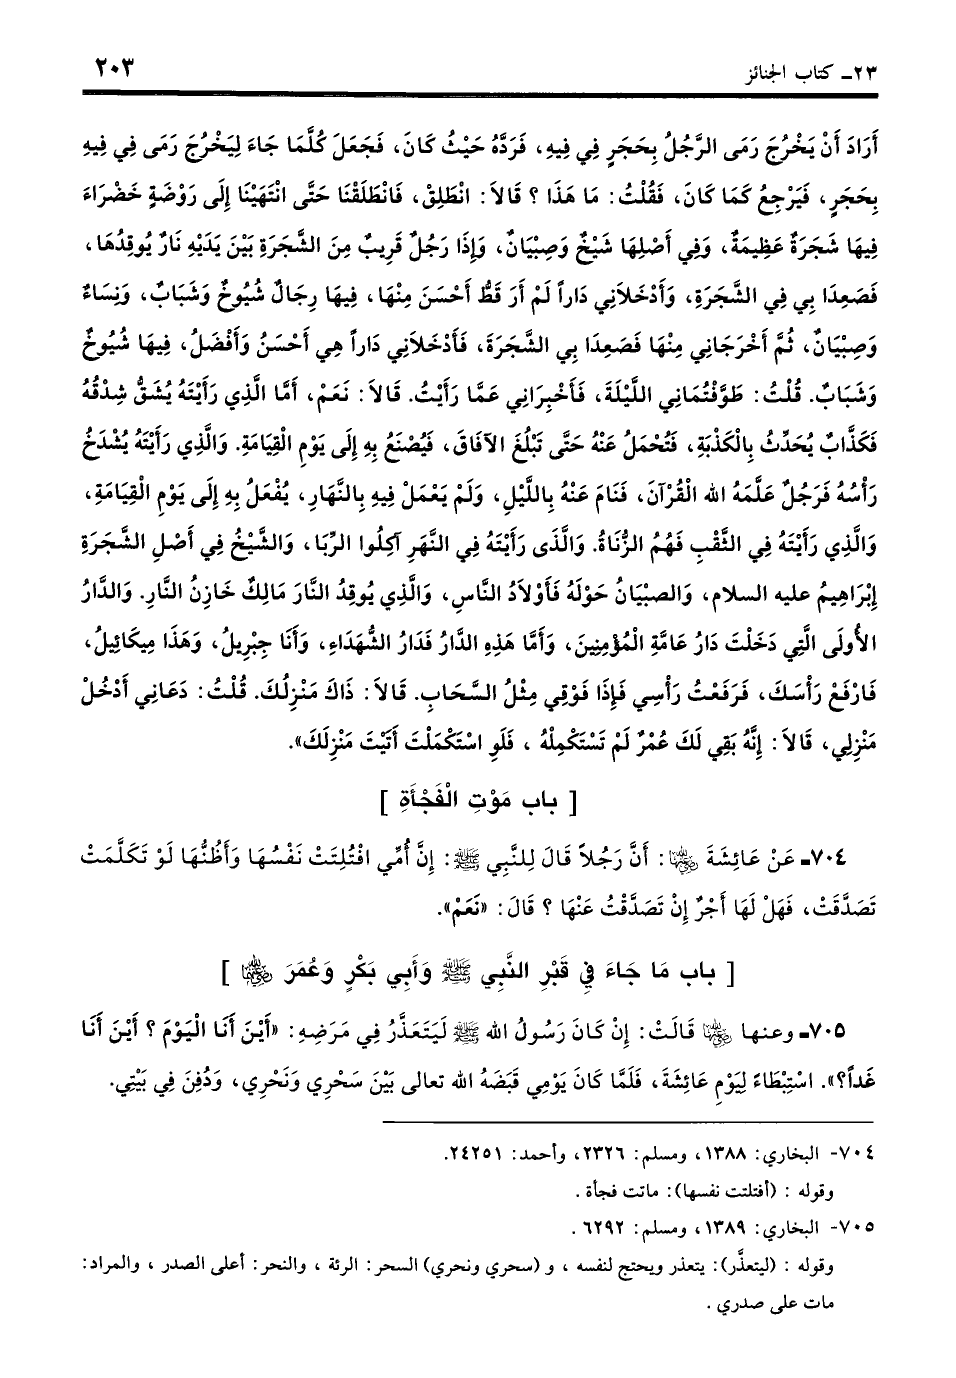 ٢٣ـ كتاب الجنائز ٢٠٣
أَرَادَ أَنْ يَخْرُجَ رَمَى الرَّجُلُ بِحَجَرٍ فِي فِيهِ، فَرَدَّهُ حَيْثُ كَانَ، فَجَعَلَ كُلَّمَا جَاءَ لِيَخْرُجَ رَمَى فِي فِيهِ
بِحَجَرٍ، فَيَرْجِعُ كَمَا كَانَ، فَقُلْتُ: مَا هَذَا ؟ قَالاَ: انْطَلِقْ، فَانْطَلَقْنَا حَتَّى انْتَهَيْنَا إِلَى رَوْضَةٍ خَضْرَاءَ
فِيهَا شَجَرَةٌ عَظِيمَةٌ، وَفِي أَصْلِهَا شَيْخٌ وَصِبْيَانٌ، وَإِذَا رَجُلٌ قَرِيبٌ مِنَ الشَّجَرَةِ بَيْنَ يَدَيْهِ نَارٌ يُوقِدُهَا،
فَصَعِدَا بِي فِي الشَّجَرَةِ، وَأَدْخَلاَنِي دَاراً لَمْ أَرَ قَطُّ أَحْسَنَ مِنْهَا، فِيهَا رِجَالٌ شُيُوخٌ وَشَبَابٌ، وَنِسَاءٌ
وَصِبْيَانٌ، ثُمَّ أَخْرَجَانِي مِنْهَا فَصَعِدَا بِي الشَّجَرَةَ، فَأَدْخَلاَنِي دَاراً هِي أَحْسَنُ وَأَفْضَلُ، فِيهَا شُيُوخٌ
وَشَبَابٌ. قُلْتُ: طَوَّفْتُمَانِي اللَّيْلَةَ، فَأَخْبِرَانِي عَمَّا رَأَيْتُ. قَالاَ: نَعَمْ، أَمَّا الَّذِي رَأَيْتَهُ يُشَقُّ شِدْقُهُ
فَكَذَّابٌ يُحَدِّثُ بِالْكَذْبَةِ، فَتُحْمَلُ عَنْهُ حَتَّى تَبْلُغَ الآفَاقَ، فَيُصْنَعُ بِهِ إِلَى يَوْمِ الْقِيَامَةِ. وَالَّذِي رَأَيْتَهُ يُشْدَخُ
رَأْسُهُ فَرَجُلٌ عَلَّمَهُ الله الْقُرْآنَ، فَنَامَ عَنْهُ بِاللَّيْلِ، وَلَمْ يَعْمَلْ فِيهِ بِالنَّهَارِ، يُفْعَلُ بِهِ إِلَى يَوْمِ الْقِيَامَةِ،
وَالَّذِي رَأَيْتَهُ فِي الثَّقْبِ فَهُمُ الزُّنَاةُ. وَالَّذَى رَأَيْتَهُ فِي النَّهَرِ آكِلُوا الرِّبَا، وَالشَّيْخُ فِي أَصْلِ الشَّجَرَةِ
إِبْرَاهِيمُ عليه السلام، وَالصبْيَانُ حَوْلَهُ فَأَوْلاَدُ النَّاسِ، وَالَّذِي يُوقِدُ النَّارَ مَالِكٌ خَازِنُ النَّارِ. وَالدَّارُ
الأُولَى الَّتِي دَخَلْتَ دَارُ عَامَّةِ الْمُؤْمِنِينَ، وَأَمَّا هَذِهِ الدَّارُ فَدَارُ الشُّهَدَاءِ، وَأَنَا جِبْرِيلُ، وَهَذَا مِيكَائِيلُ،
فَارْفَعْ رَأْسَكَ، فَرَفَعْتُ رَأْسِي فَإِذَا فَوْقِي مِثْلُ السَّحَابِ. قَالاَ: ذَاكَ مَنْزِلُكَ. قُلْتُ: دَعَانِي أَدْخُلْ
مَنْزِلِي، قَالاَ: إِنَّهُ بَقِي لَكَ عُمْرٌ لَمْ تَسْتَكْمِلْهُ ، فَلَوِ اسْتَكْمَلْتَ أَتَيْتَ مَنْزِلَكَ».
[ باب مَوْتِ الْفَجْأَةِ ]
٧٠٤ـ عَنْ عَائِشَةَ رضي الله عنها: أَنَّ رَجُلاً قَالَ لِلنَّبِي ﷺ: إِنَّ أُمِّي افْتُلِتَتْ نَفْسُهَا وَأَظُنُّهَا لَوْ تَكَلَّمَتْ
تَصَدَّقَتْ، فَهَلْ لَهَا أَجْرٌ إِنْ تَصَدَّقْتُ عَنْهَا ؟ قَالَ: «نَعَمْ».
[ باب مَا جَاءَ فِي قَبْرِ النَّبِي ﷺ وَأَبِي بَكْرٍ وَعُمَرَ رضي الله عنهما ]
٧٠٥ـ وعنها رضي الله عنها قَالَتْ: إِنْ كَانَ رَسُولُ الله ﷺ لَيَتَعَذَّرُ فِي مَرَضِهِ: «أَيْنَ أَنَا الْيَوْمَ ؟ أَيْنَ أَنَا
غَداً؟». اسْتِبْطَاءً لِيَوْمِ عَائِشَةَ، فَلَمَّا كَانَ يَوْمِي قَبَضَهُ الله تعالى بَيْنَ سَحْرِي وَنَحْرِي، وَدُفِنَ فِي بَيْتِي.
٧٠٤- البخاري: ١٣٨٨، ومسلم: ٢٣٢٦، وأحمد: ٢٤٢٥١.
وقوله : (أفتلتت نفسها): ماتت فجأة .
٧٠٥- البخاري: ١٣٨٩، ومسلم: ٦٢٩٢ .
وقوله : (ليتعذَّر): يتعذر ويحتج لنفسه ، و (سحري ونحري) السحر: الرئة ، والنحر: أعلى الصدر ، والمراد:
مات على صدري .